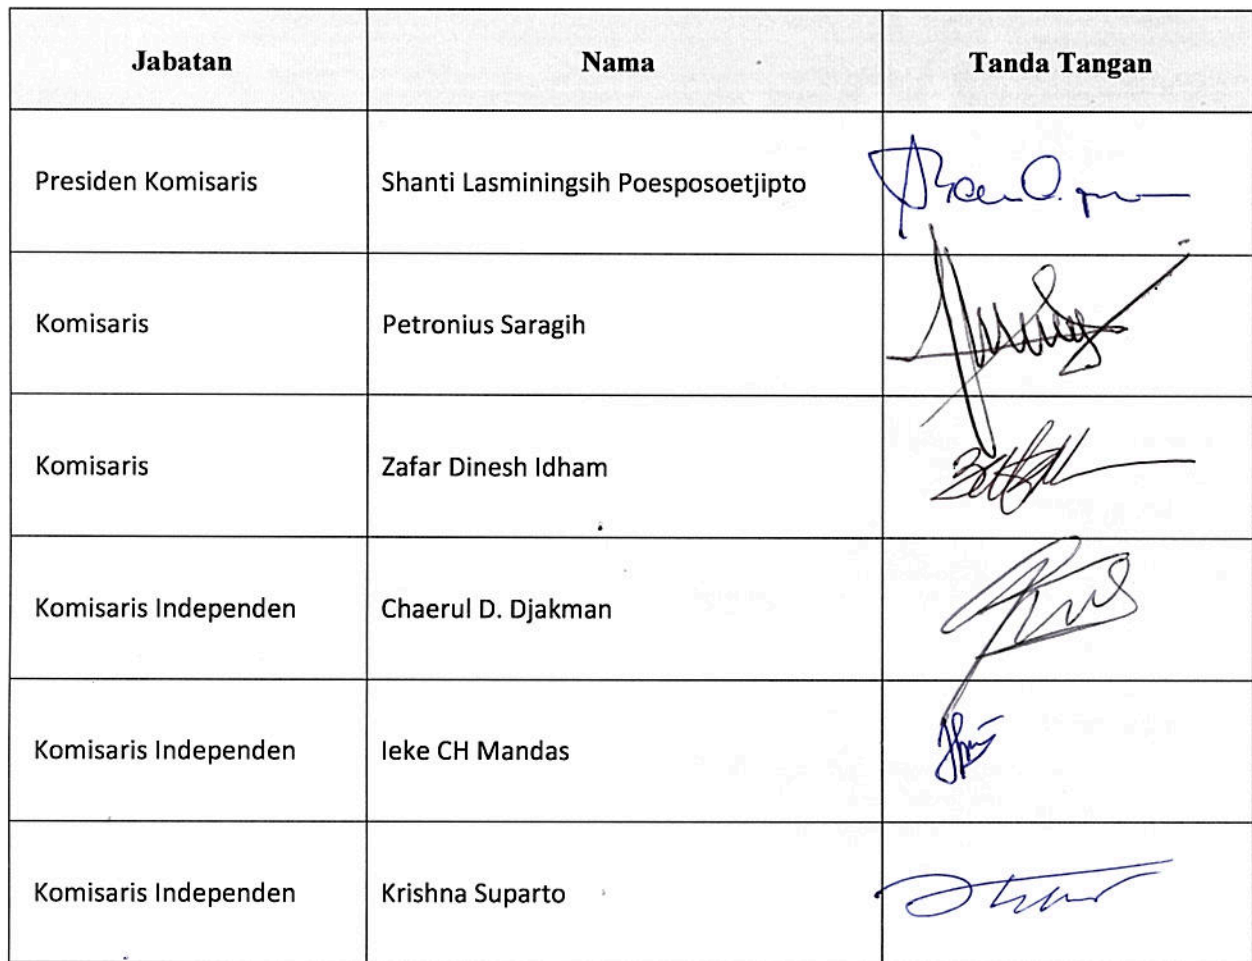 Jabatan Nama Tanda Tangan
Presiden Komisaris Shanti Lasminingsih Poesposoetjipto
Komisaris Petronius Saragih
Komisaris Zafar Dinesh Idham
Komisaris Independen Chaerul D. Djakman
Komisaris Independen Ieke CH Mandas
Komisaris Independen Krishna Suparto